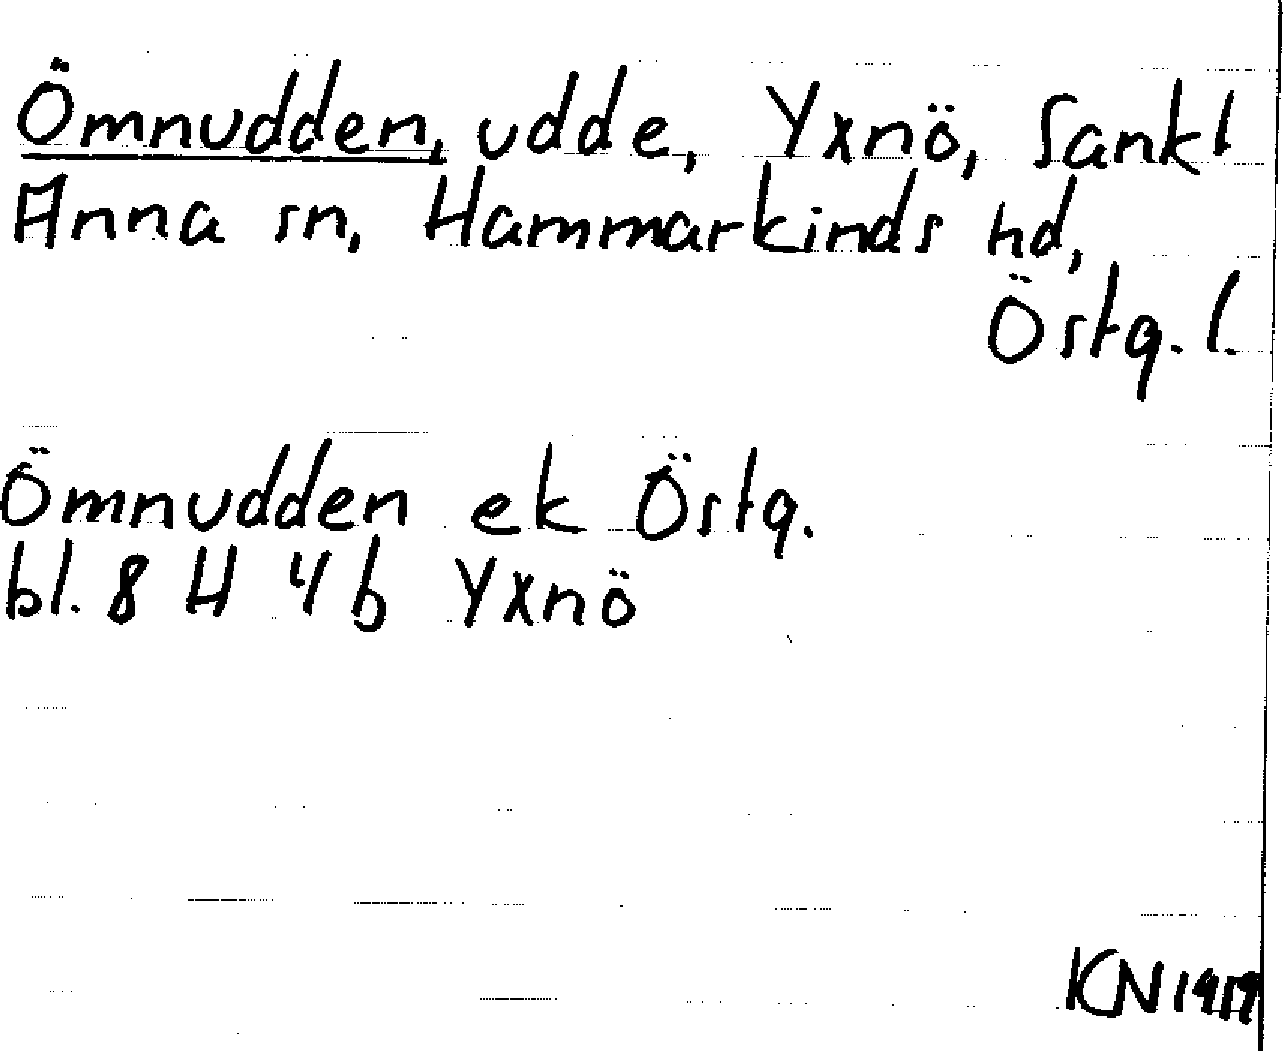 Ömnudden, udde, Yxnö, Sankt
Anna sn, Hammarkinds hd,
Östg. l.
Ömnudden ek Östg.
bl. 8 H 4 b Yxnö
KN